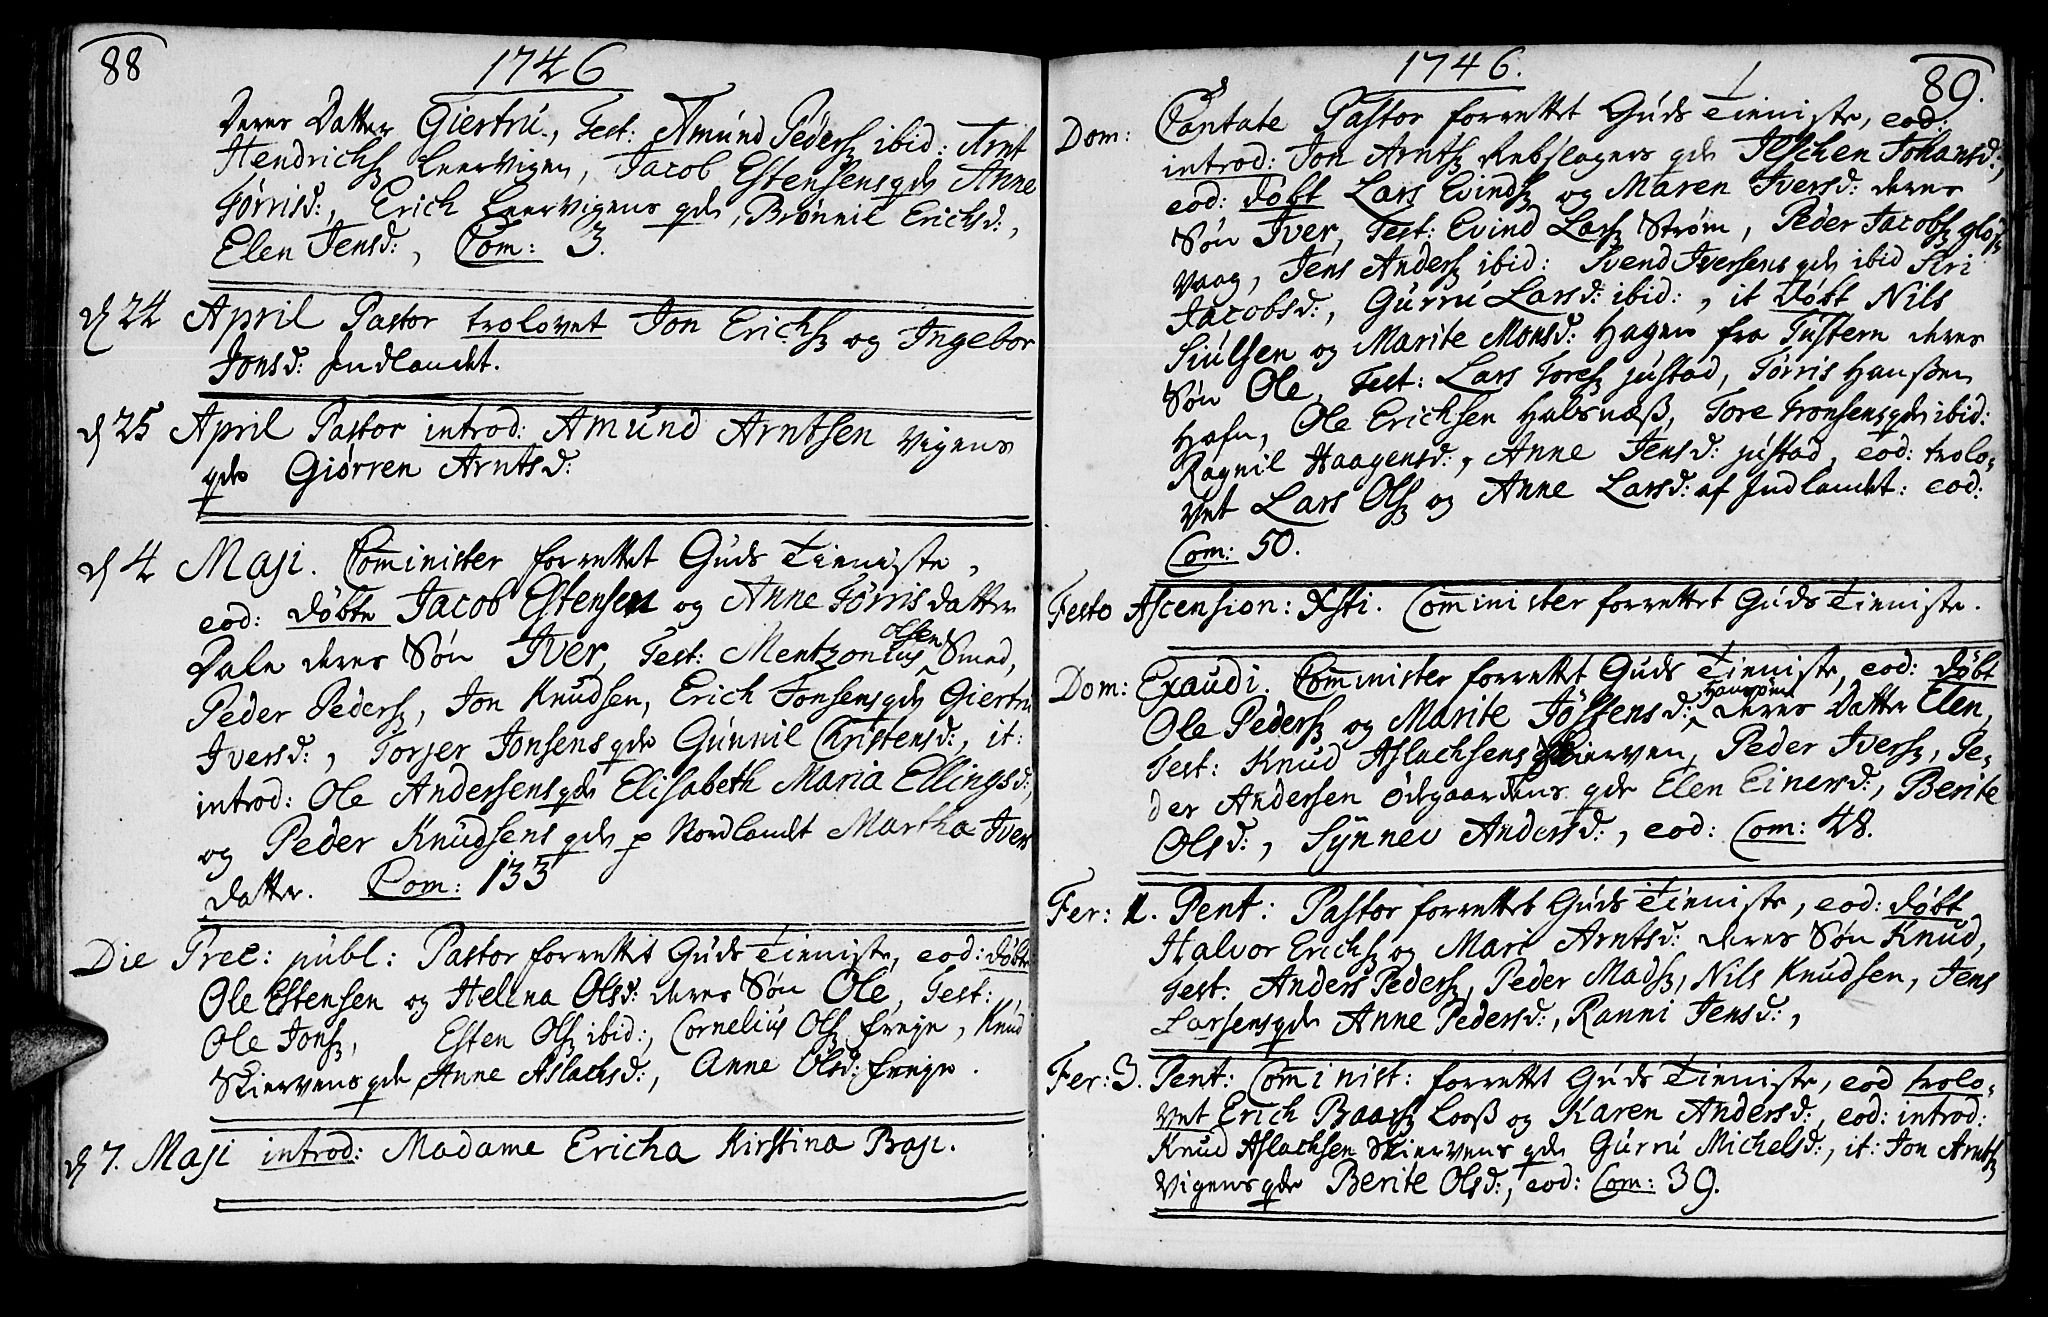 88
1746
Deres Datter Giertrú., Test: Amúnd Pedersz ibid: Arnt
Hendrichsz Leervigen, Jacob Estensens qde Anne
Tørrisd:, Erich Leervigens qde, Brønnil Erichsd:,
Elen Jensd:, Com: 3.
d 24 April Pastor trolovet Jon Erichsz og Ingebor
Jonsd: Indlandet.
d 25 April Pastor introd: Amúnd Arntsen Vigens
qde Giørren Arntsd:
d 4 Maji. Com̄inister forrettet Gúds Tieniste,
eod: døbte Jacob Estensen og Anne Tørrisdatter
Dale deres Søn Iver, Test: Mentzonius Olsen Smed,
Peder Pedersz, Jon Knudsen, Erich Jonsens qde Giertru
Iversd:, Torjer Jonsens qde Gúnnil Christensd:, it:
introd: Ole Andersens qde Elisabeth Maria Ellingsd:,
og Peder Knudsens qde p Nordlandt Martha Ivers
datter. Com: 133
Die Prec: públ: Pastor forrettet Gúds Tieniste, eod: døbte
Ole Estensen og Helena Olsd: deres Søn Ole, Test:
Ole Jonsz, Esten Olsz ibid:, Cornelius Olsz freye, Knud
Skiervens qde Anne Aslachsd:, Anne Olsd: freye.
d 7. Maji introd: Madame Ericha Kirstina Baje.
1746.
89.
Dom: Cantate Pastor forrettet Gúds Tieniste, eod:
introd: Jon Arntsz Rebslagers qde Ilschen Johansd:,
eod: døbt Lars Evindsz og Maren Iversd: deres
Søn Iver, Test: Evind Larsz Strøm, Peder Jacobsz glos-
vaag, Jens Andersz ibid: Svend Iversens qde ibid Siri
Jacobsd:, Gúrrú Larsd: ibid:, it døbt Nils
Siúlsen og Marite Monsd: Hagen fra Tústern deres
Søn Ole, Test: Lars Toresz jústad, Tørris Hanßen
Hafn, Ole Erichsen Halsnæß, Tore Tronsens qde ibid:
Ragnil Haagensd:, Anne Jensd: jústad, eod: trolo-
vet Lars Olsz og Anne Larsd: af Indlandet: eod:
Com: 50.
Festo Ascension: Xsti. Com̄inister forrettet Gúds Tieniste.
Dom: Exaudi. Com̄inister forrettet Gúds Tieniste, eod: døbt
Ole Pedersz og Marite Jøstensd: deres Datter Elen,
Test: Knud Aslachsens Skierven, Peder Iversz, Pe-
der Andersen Ödegaardens qde Elen Einersd:, Berite
Olsd:, Synnev Andersd:, eod: Com: 48.
Fer: 1. Pent: Pastor forrettet Gúds Tieniste, eod: døbt
Halvor Erichsz og Mari Arntsd: deres Søn Knud,
Test: Anders Pedersz, Peder Madsz, Nils Knudsen, Jens
Larsens qde Anne Pedersd:, Ranni Jensd:,
Fer: 3. Pent: Com̄inist: forrettet Gúds Tieniste, eod trolo-
vet Erich Baarsz Looß og Karen Andersd:, eod: introd:
Knud Aslachsen Skiervens qde Gúrrú Michelsd:, it: Jon Arntsz
Vigens qde Berite Olsd:, eod: Com: 39.